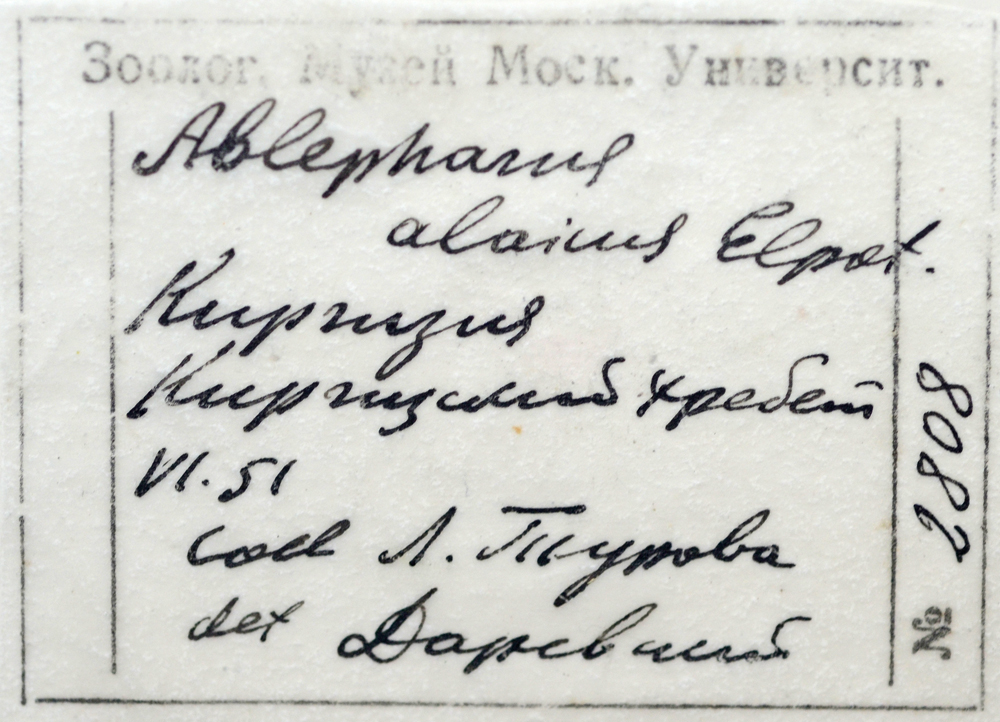 Зоолог. Музей Моск. Университ.
Ablepharus
alaicus Elpat.
Киргизия
Киргизский хребет
VI.51
coll Л. Турова
det Даревский
№ 2808